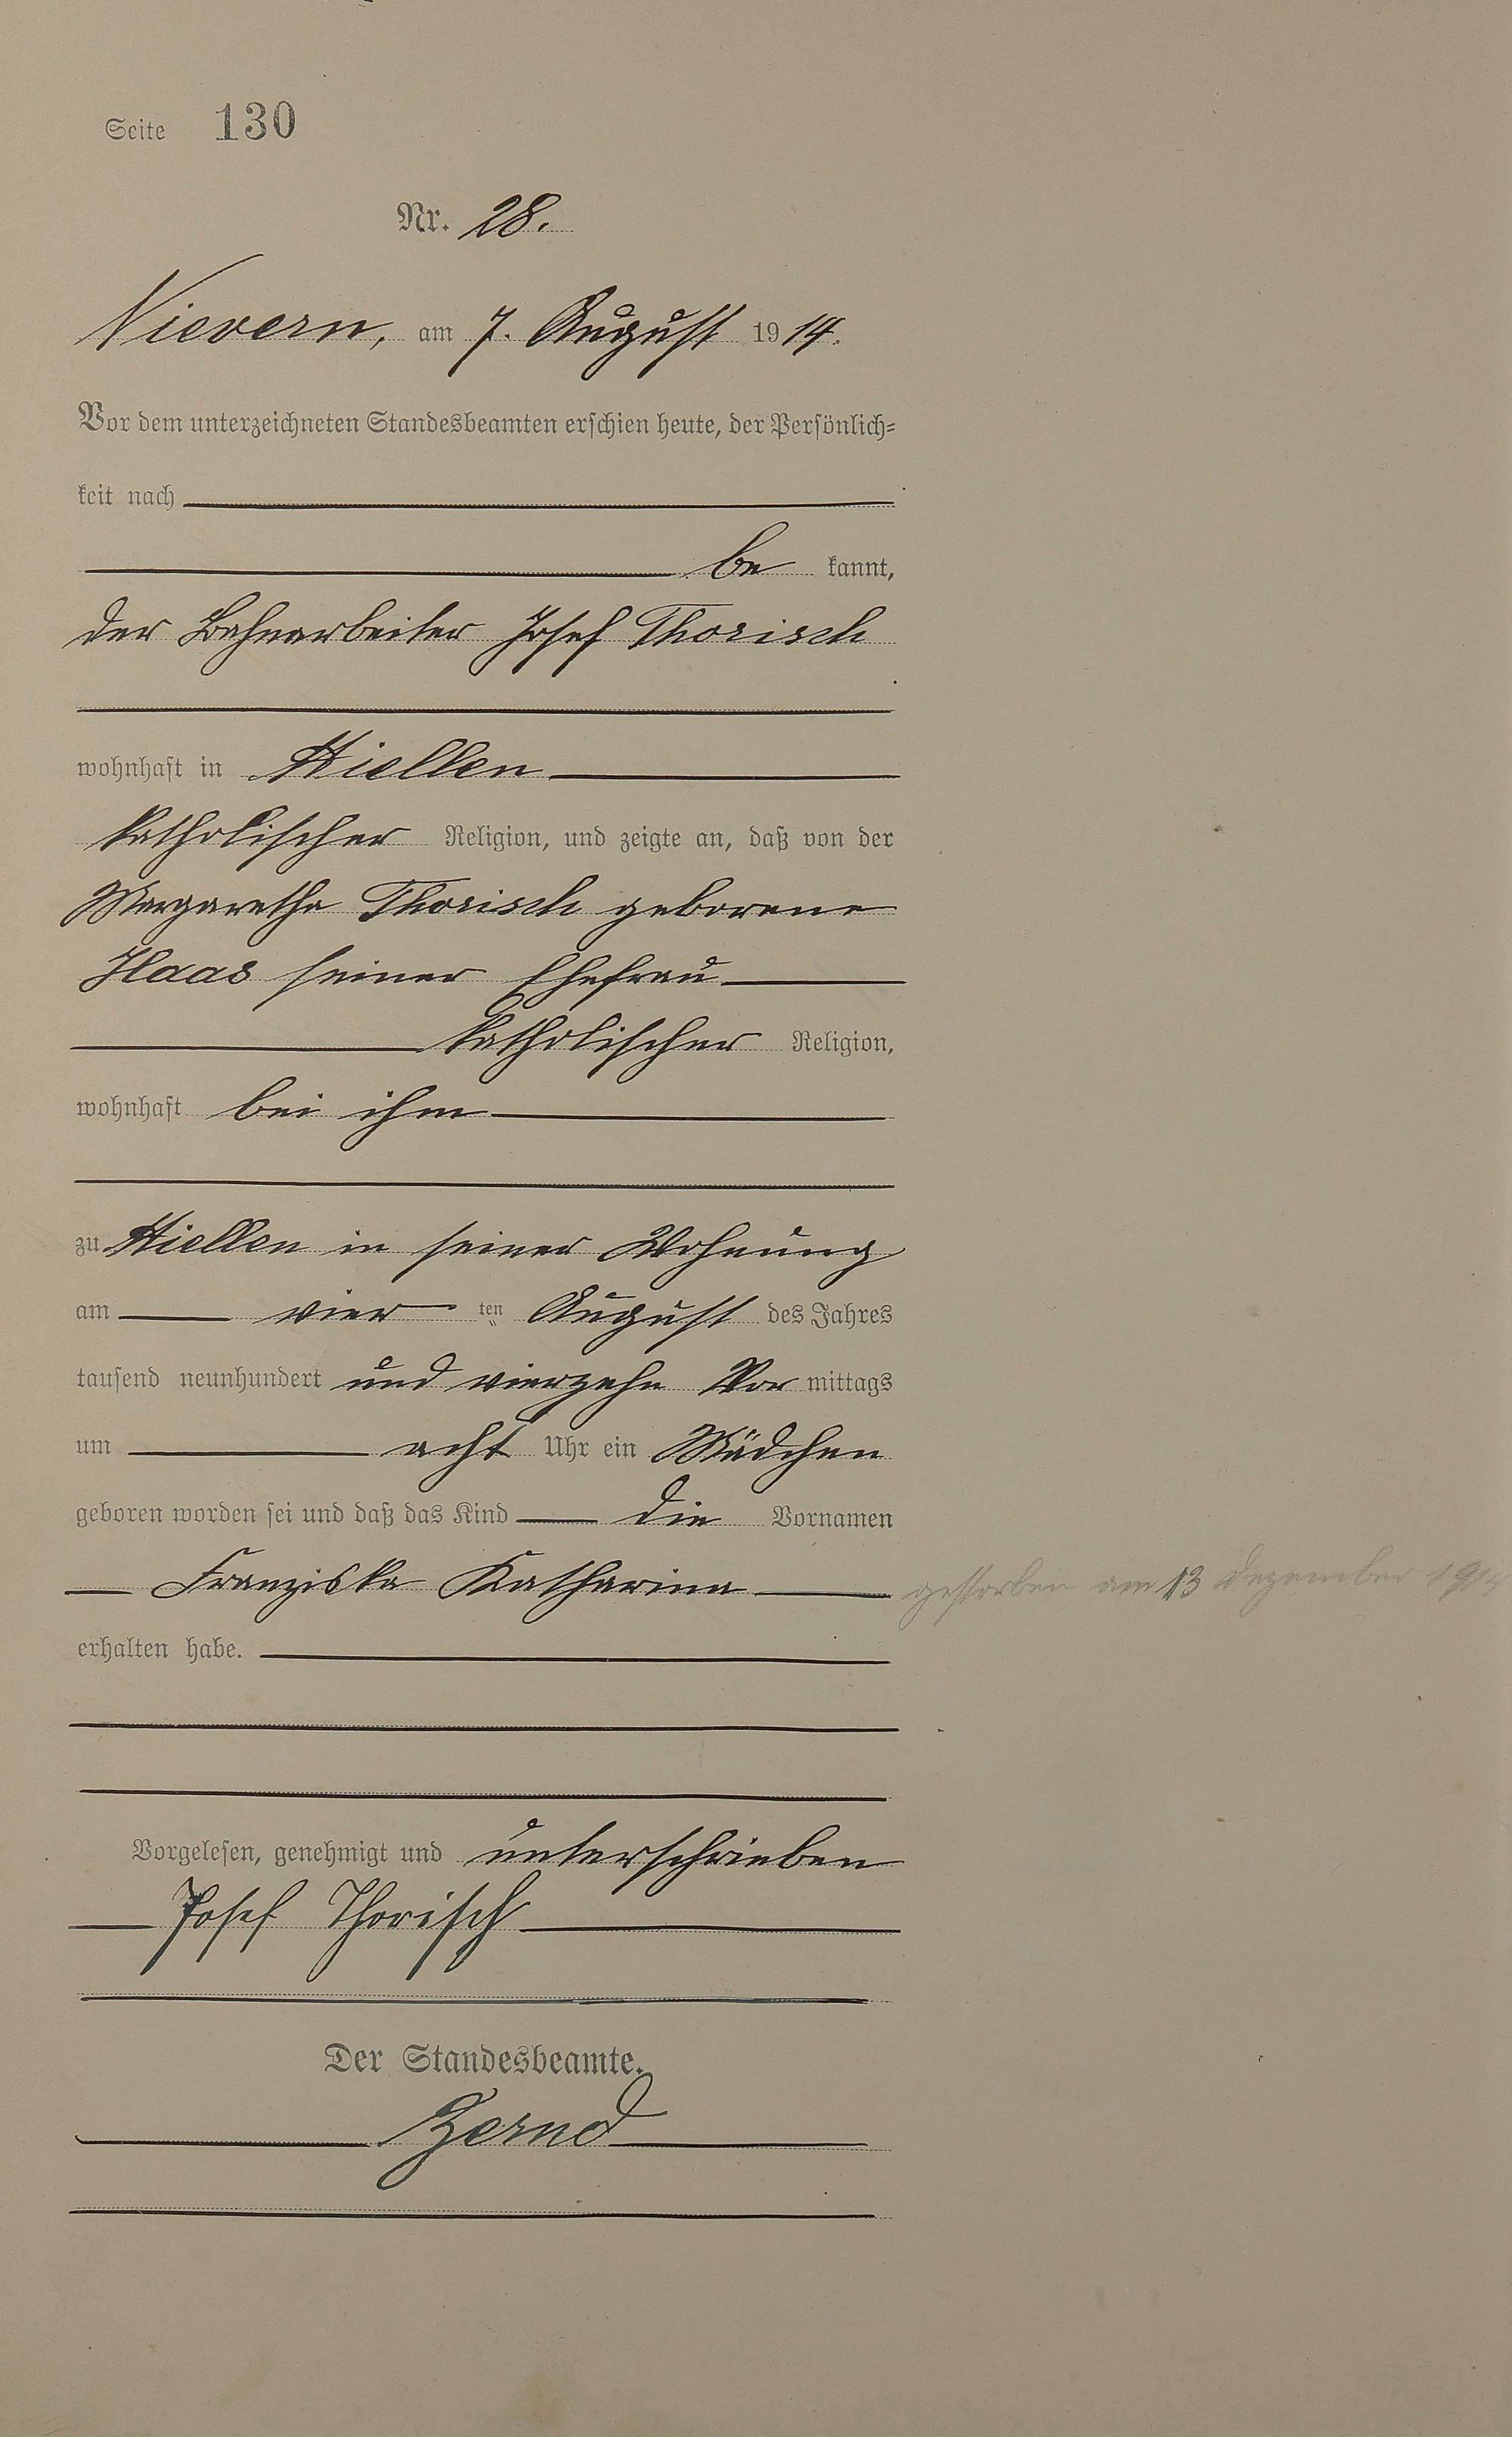 Seite 130
Nr. 28.
Nievern, am 7. August 1914.
Vor dem unterzeichneten Standesbeamten erschien heute, der Persönlich=
keit nach
be kannt,
der Bahnarbeiter Josef Thorisch
wohnhaft in Miellen
katholischer Religion, und zeigte an, daß von der
Margaretha Thorisch geborene
Haas seiner Ehefrau
katholischer Religion,
wohnhaft bei ihm
zu Miellen in seiner Wohnung
am vier ten August des Jahres
tausend neunhundert und vierzehn Vor mittags
um acht Uhr ein Mädchen
geboren worden sei und daß das Kind die Vornamen
Franziska Katharina gestorben am 13 Dezember 1914
erhalten habe.
Vorgelesen, genehmigt und unterschrieben
Josef Thorisch
Der Standesbeamte.